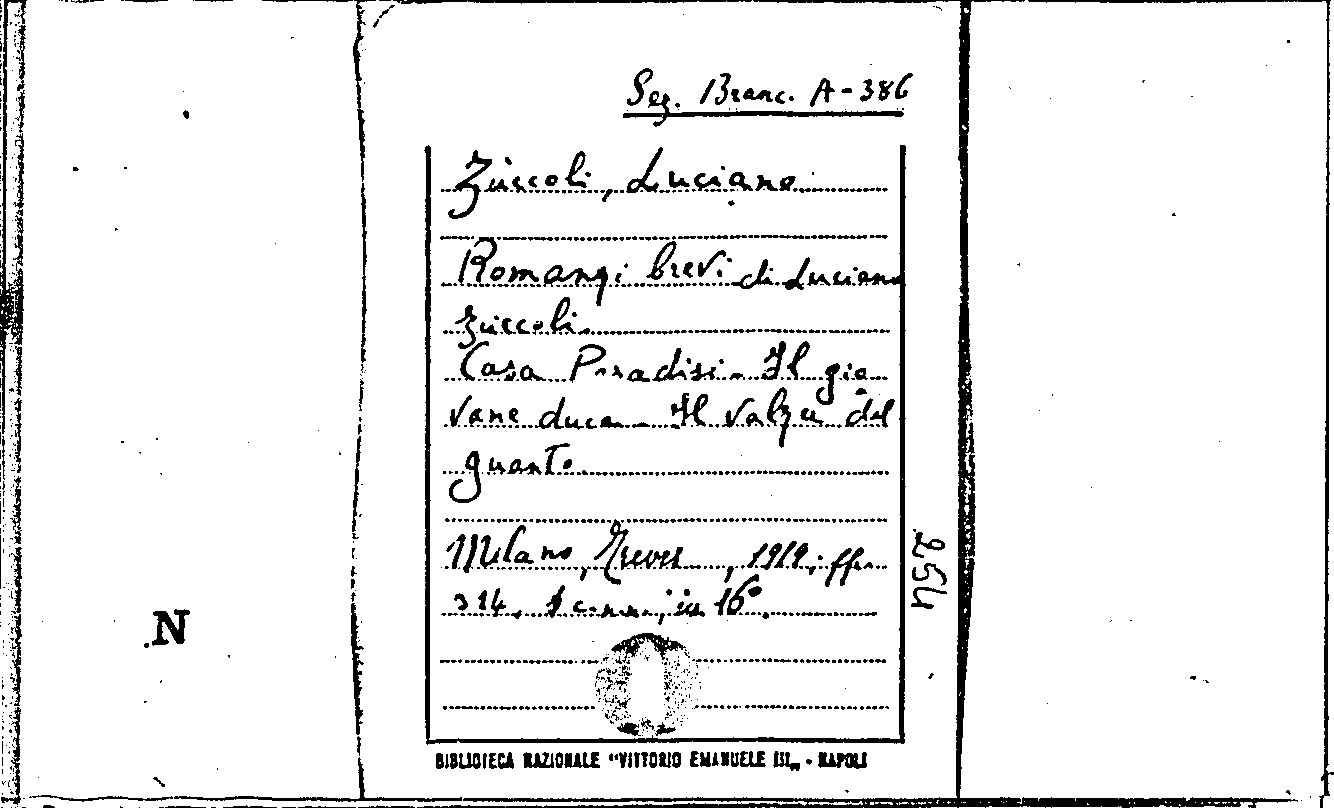 Sez. Branc. A-386
Zuccoli, Luciano
Romanzi brevi di Luciano
Zuccoli.
Casa Paradisi - Il gio
vane duca - Il valzer del
guanto.
Milano, Treves, 1919, pp.
314, in 16°.
254
N
BIBLIOTECA NAZIONALE "VITTORIO EMANUELE III„ - NAPOLI